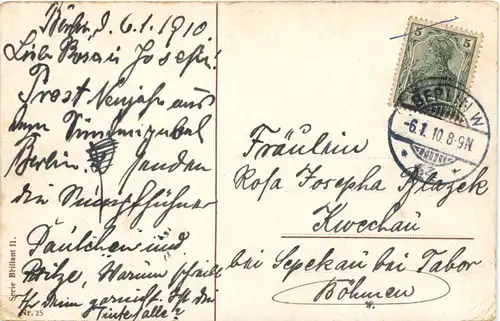 Berlin, d. 6.1.1910
Liebe Rosa u Josefi!
Prost Neujahr aus
dem Sündenpfuhl
Berlin. senden
die Sumpfhühner
Paulchen und
Fritze, Warum schreibt
Ihr denn garnicht. Ist die
Tinte alle?
5 5
BERLIN W
-6.1.10.8-9N.
Fräulein
Rosa Josepha Blazek
Kwechau
bei Sepekau bei Tabor
Böhmen
Serie Brillant II.
Nr. 25